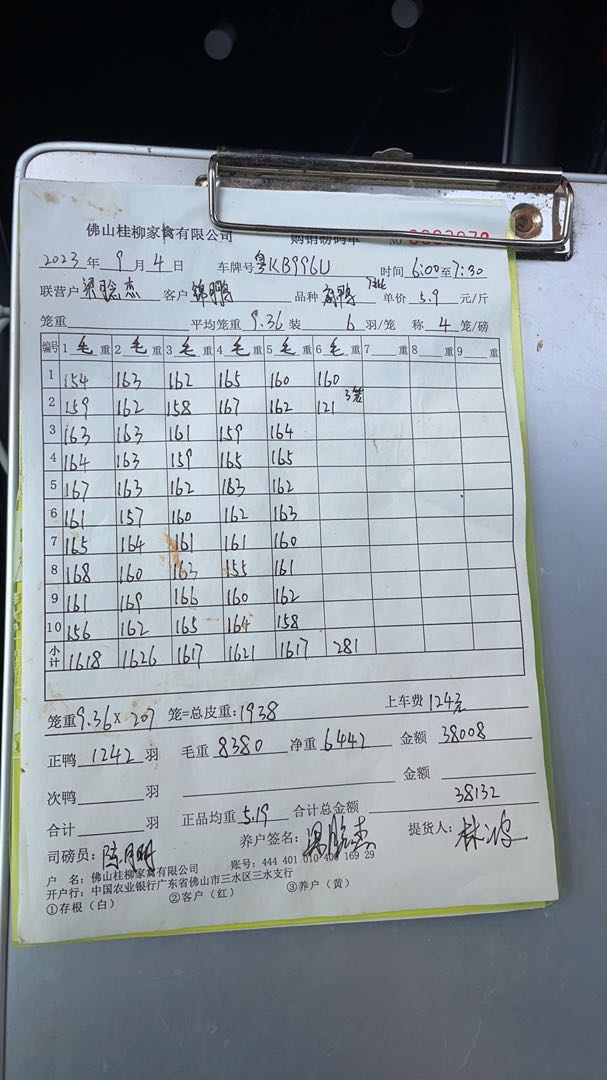 佛山桂柳家禽有限公司 购销磅码单 №
2023 年 9 月 4 日 车牌号 粤KB996U 时间 6:00 至 7:30
联营户 客户 锦鹏 品种 单价 5.9 元/斤
笼重 平均笼重 9.36 装 6 羽/笼 称 4 笼/磅
编号 1 毛 重 2 毛 重 3 毛 重 4 毛 重 5 毛 重 6 毛 重 7 重 8 重 9 重
1 154 163 162 165 160 160
2 159 162 158 167 162 121 3笼
3 163 163 161 159 164
4 164 163 159 165 165
5 167 163 162 163 162
6 161 157 160 162 163
7 165 164 161 161 160
8 168 160 163 155 161
9 161 169 166 160 162
10 156 162 165 164 158
小计 1618 1626 1617 1621 1617 281
笼重 9.36 × 207 笼=总皮重: 1938 上车费 124元
正鸭 1242 羽 毛重 8380 净重 6442 金额 38008
次鸭 羽 金额
合计 羽 正品均重 5.19 合计总金额 38132
司磅员: 陈月明 养户签名: 提货人: 林波
户 名: 佛山桂柳家禽有限公司 账号: 444 401 010 400 169 29
开户行: 中国农业银行广东省佛山市三水区三水支行
①存根（白） ②客户（红） ③养户（黄）